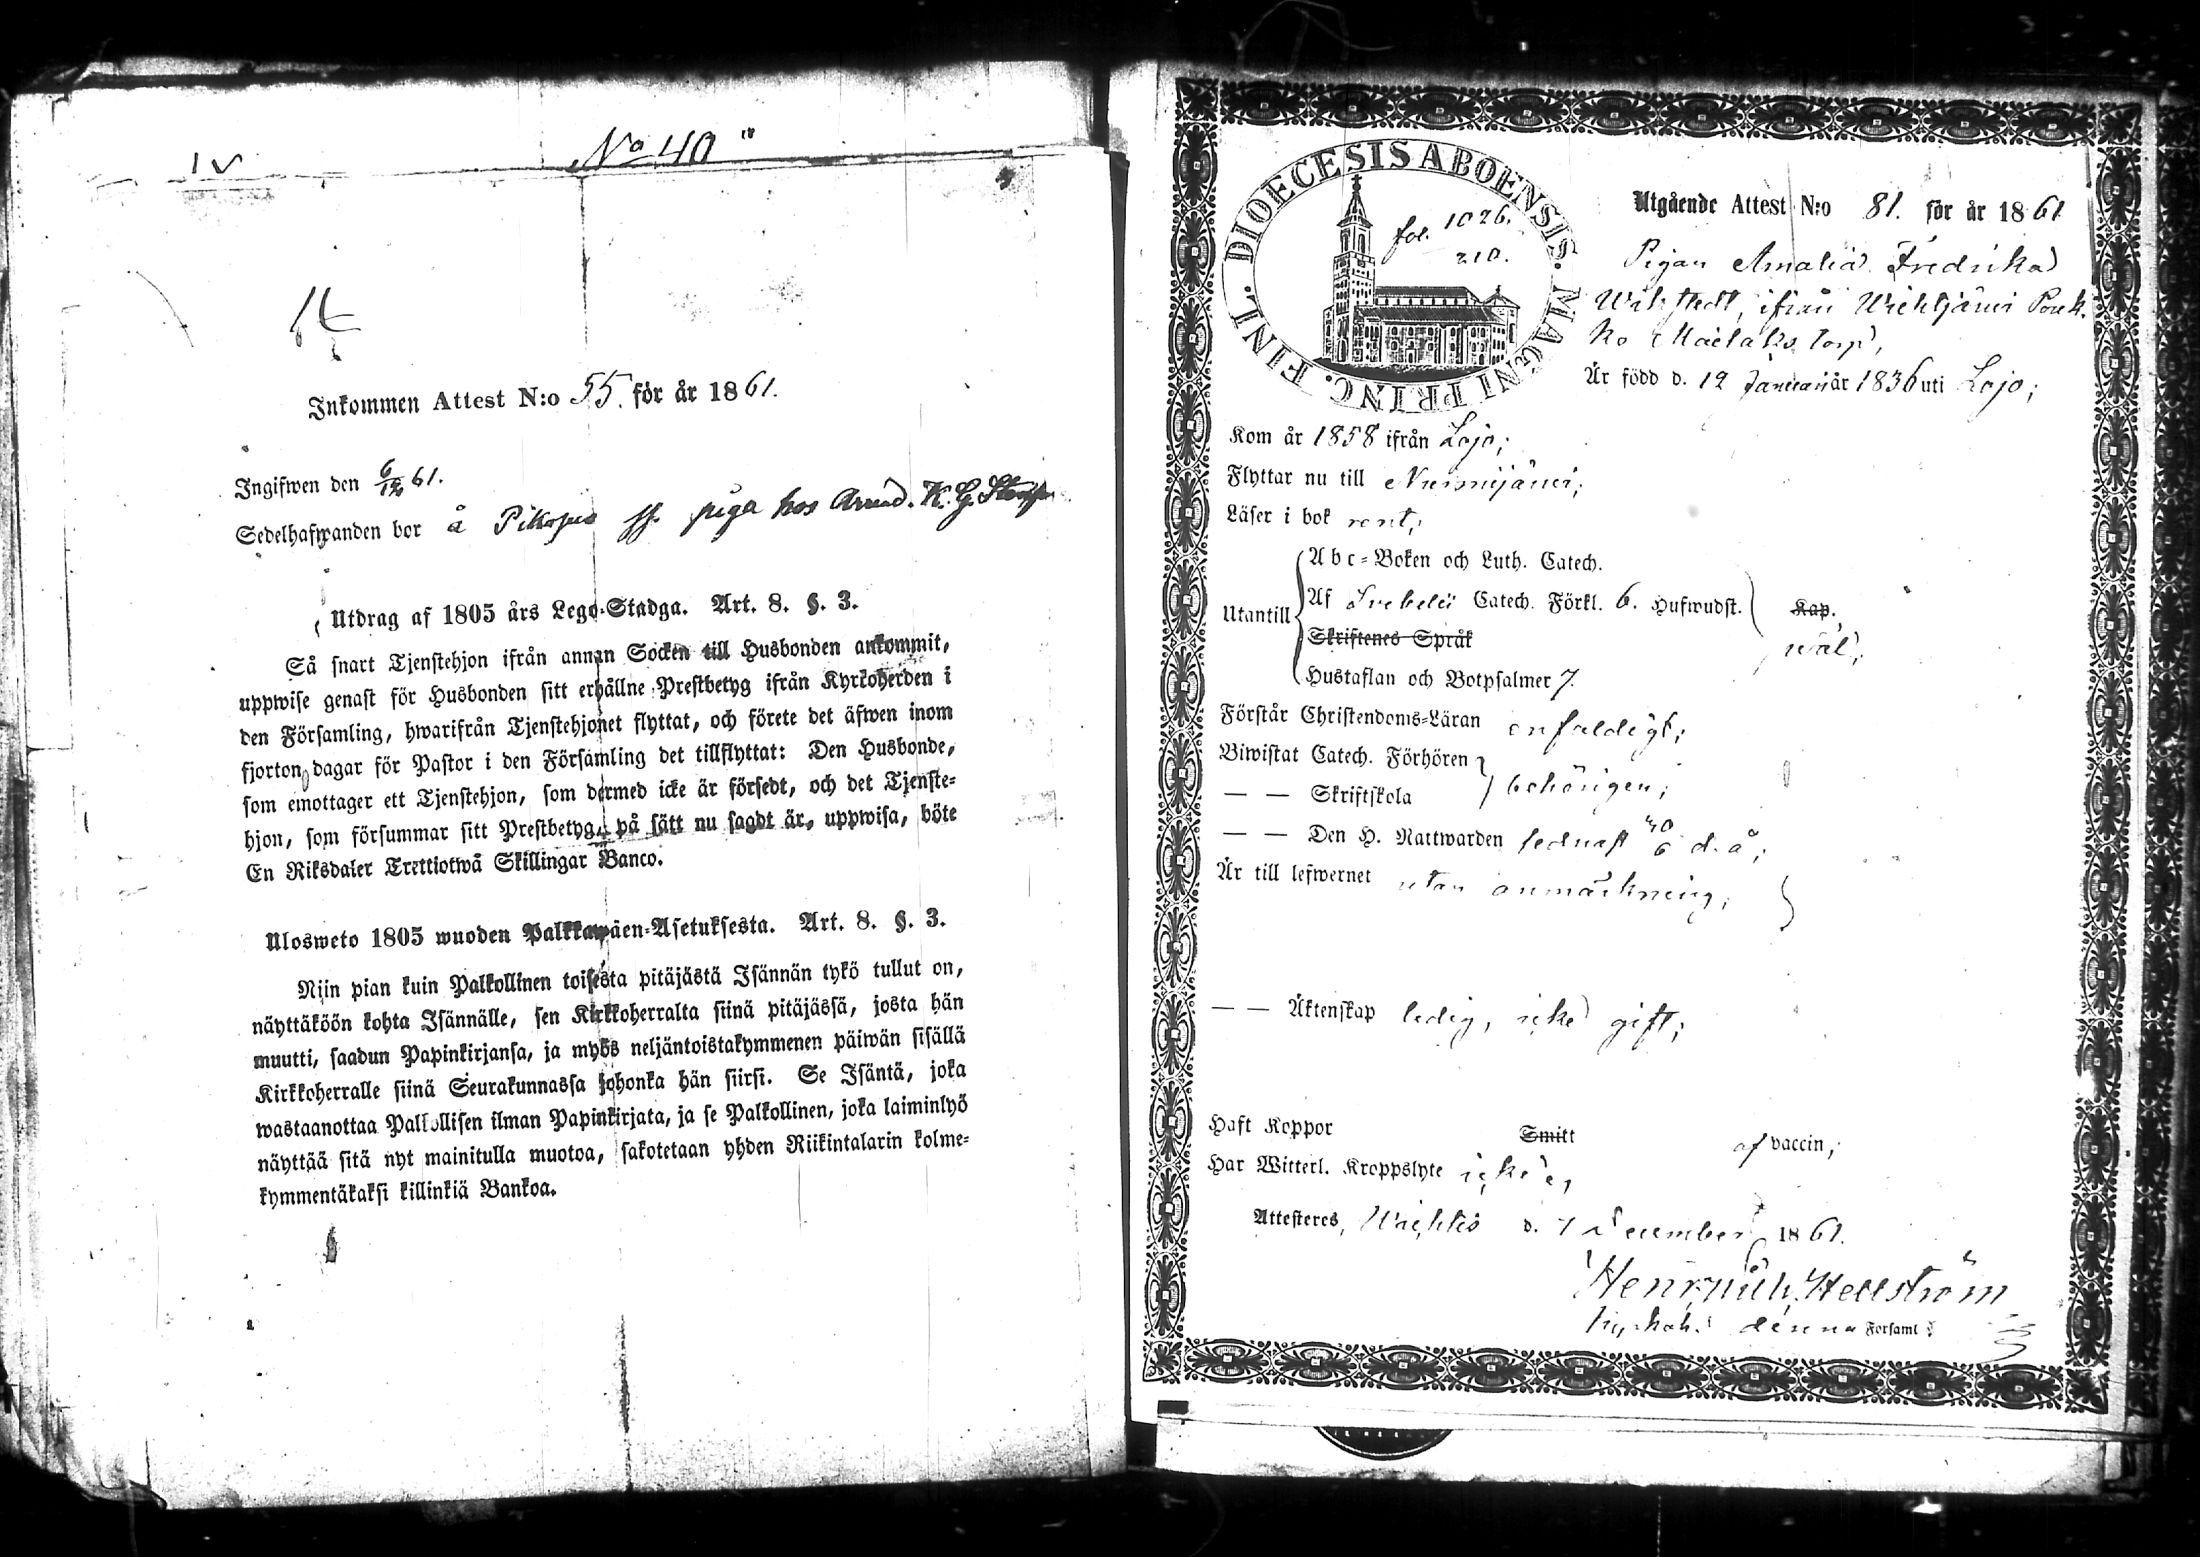 No 40
IV
Inkommen Attest N:o 55. för år 1861.
Ingifwen den 6/12 61.
Sedelhafwanden bor å Pikojus piga hos Arrend. K. G.
Utdrag af 1805 års Lego-Stadga. Art. 8. §. 3.
Så snart Tjenstehjon ifrån annan Socken till Husbonden ankommit,
uppwise genast för Husbonden sitt erhållne Prestbetyg ifrån Kyrkoherden i
den Församling, hwarifrån Tjenstehjonet flyttat, och förete det äfwen inom
fjorton dagar för Pastor i den Församling det tillflyttat: Den Husbonde,
som emottager ett Tjenstehjon, som dermed icke är försedt, och det Tjenste-
hjon, som försummar sitt Prestbetyg, på sätt nu sagdt är, uppwisa, böte
En Riksdaler Trettiotwå Skillingar Banco.
Ulosweto 1805 wuoden Palkkawäen-Asetuksesta. Art. 8. §. 3.
Niin pian kuin Palkollinen toisesta pitäjästä Isännän tykö tullut on,
näyttäköön kohta Isännälle, sen Kirkkoherralta siinä pitäjässä, josta hän
muutti, saadun Papinkirjansa, ja myös neljäntoistakymmenen päiwän sisällä
Kirkkoherralle siinä Seurakunnassa johonka hän siirsi. Se Isäntä, joka
wastaanottaa Palkollisen ilman Papinkirjata, ja se Palkollinen, joka laiminlyö
näyttää sitä nyt mainitulla muotoa, sakotetaan yhden Riikintalarin kolme-
kymmentäkaksi killinkiä Bankoa.
FINL. DIOECESIS ABOENSIS. MAGNI PRINC.
fol. 1026.
210.
Utgående Attest N:o 81. för år 1861
Pigan Amalia Fredrika
Wahlstedt, ifrån Wichtjärvi Pouk-
ko Mäeläks torp,
Är född d. 12 Januari år 1836 uti Lojo;
Kom år 1858 ifrån Lojo;
Flyttar nu till Nurmijärvi;
Läser i bok rent;
Utantill
Abc-Boken och Luth. Catech.
Af Svebelii Catech. Förkl. 6. Hufwudst. Kap.
Skriftenes Språk
wäl;
Hustaflan och Botpsalmer 7.
Förstår Christendoms-Läran enfaldigt;
Biwistat Catech. Förhören
— — Skriftskola
behörigen;
— — Den H. Nattwarden sednast 20/6 d. å;
Är till lefwernet utan anmärkning;
— — Äktenskap ledig, icke gift;
Haft Koppor Smitt af vaccin;
Har Witterl. Kroppslyte icke,
Attesteres, Wichtis d. 1 December 1861.
Henrik Hellström
kyrkoh. i denna Forsaml.